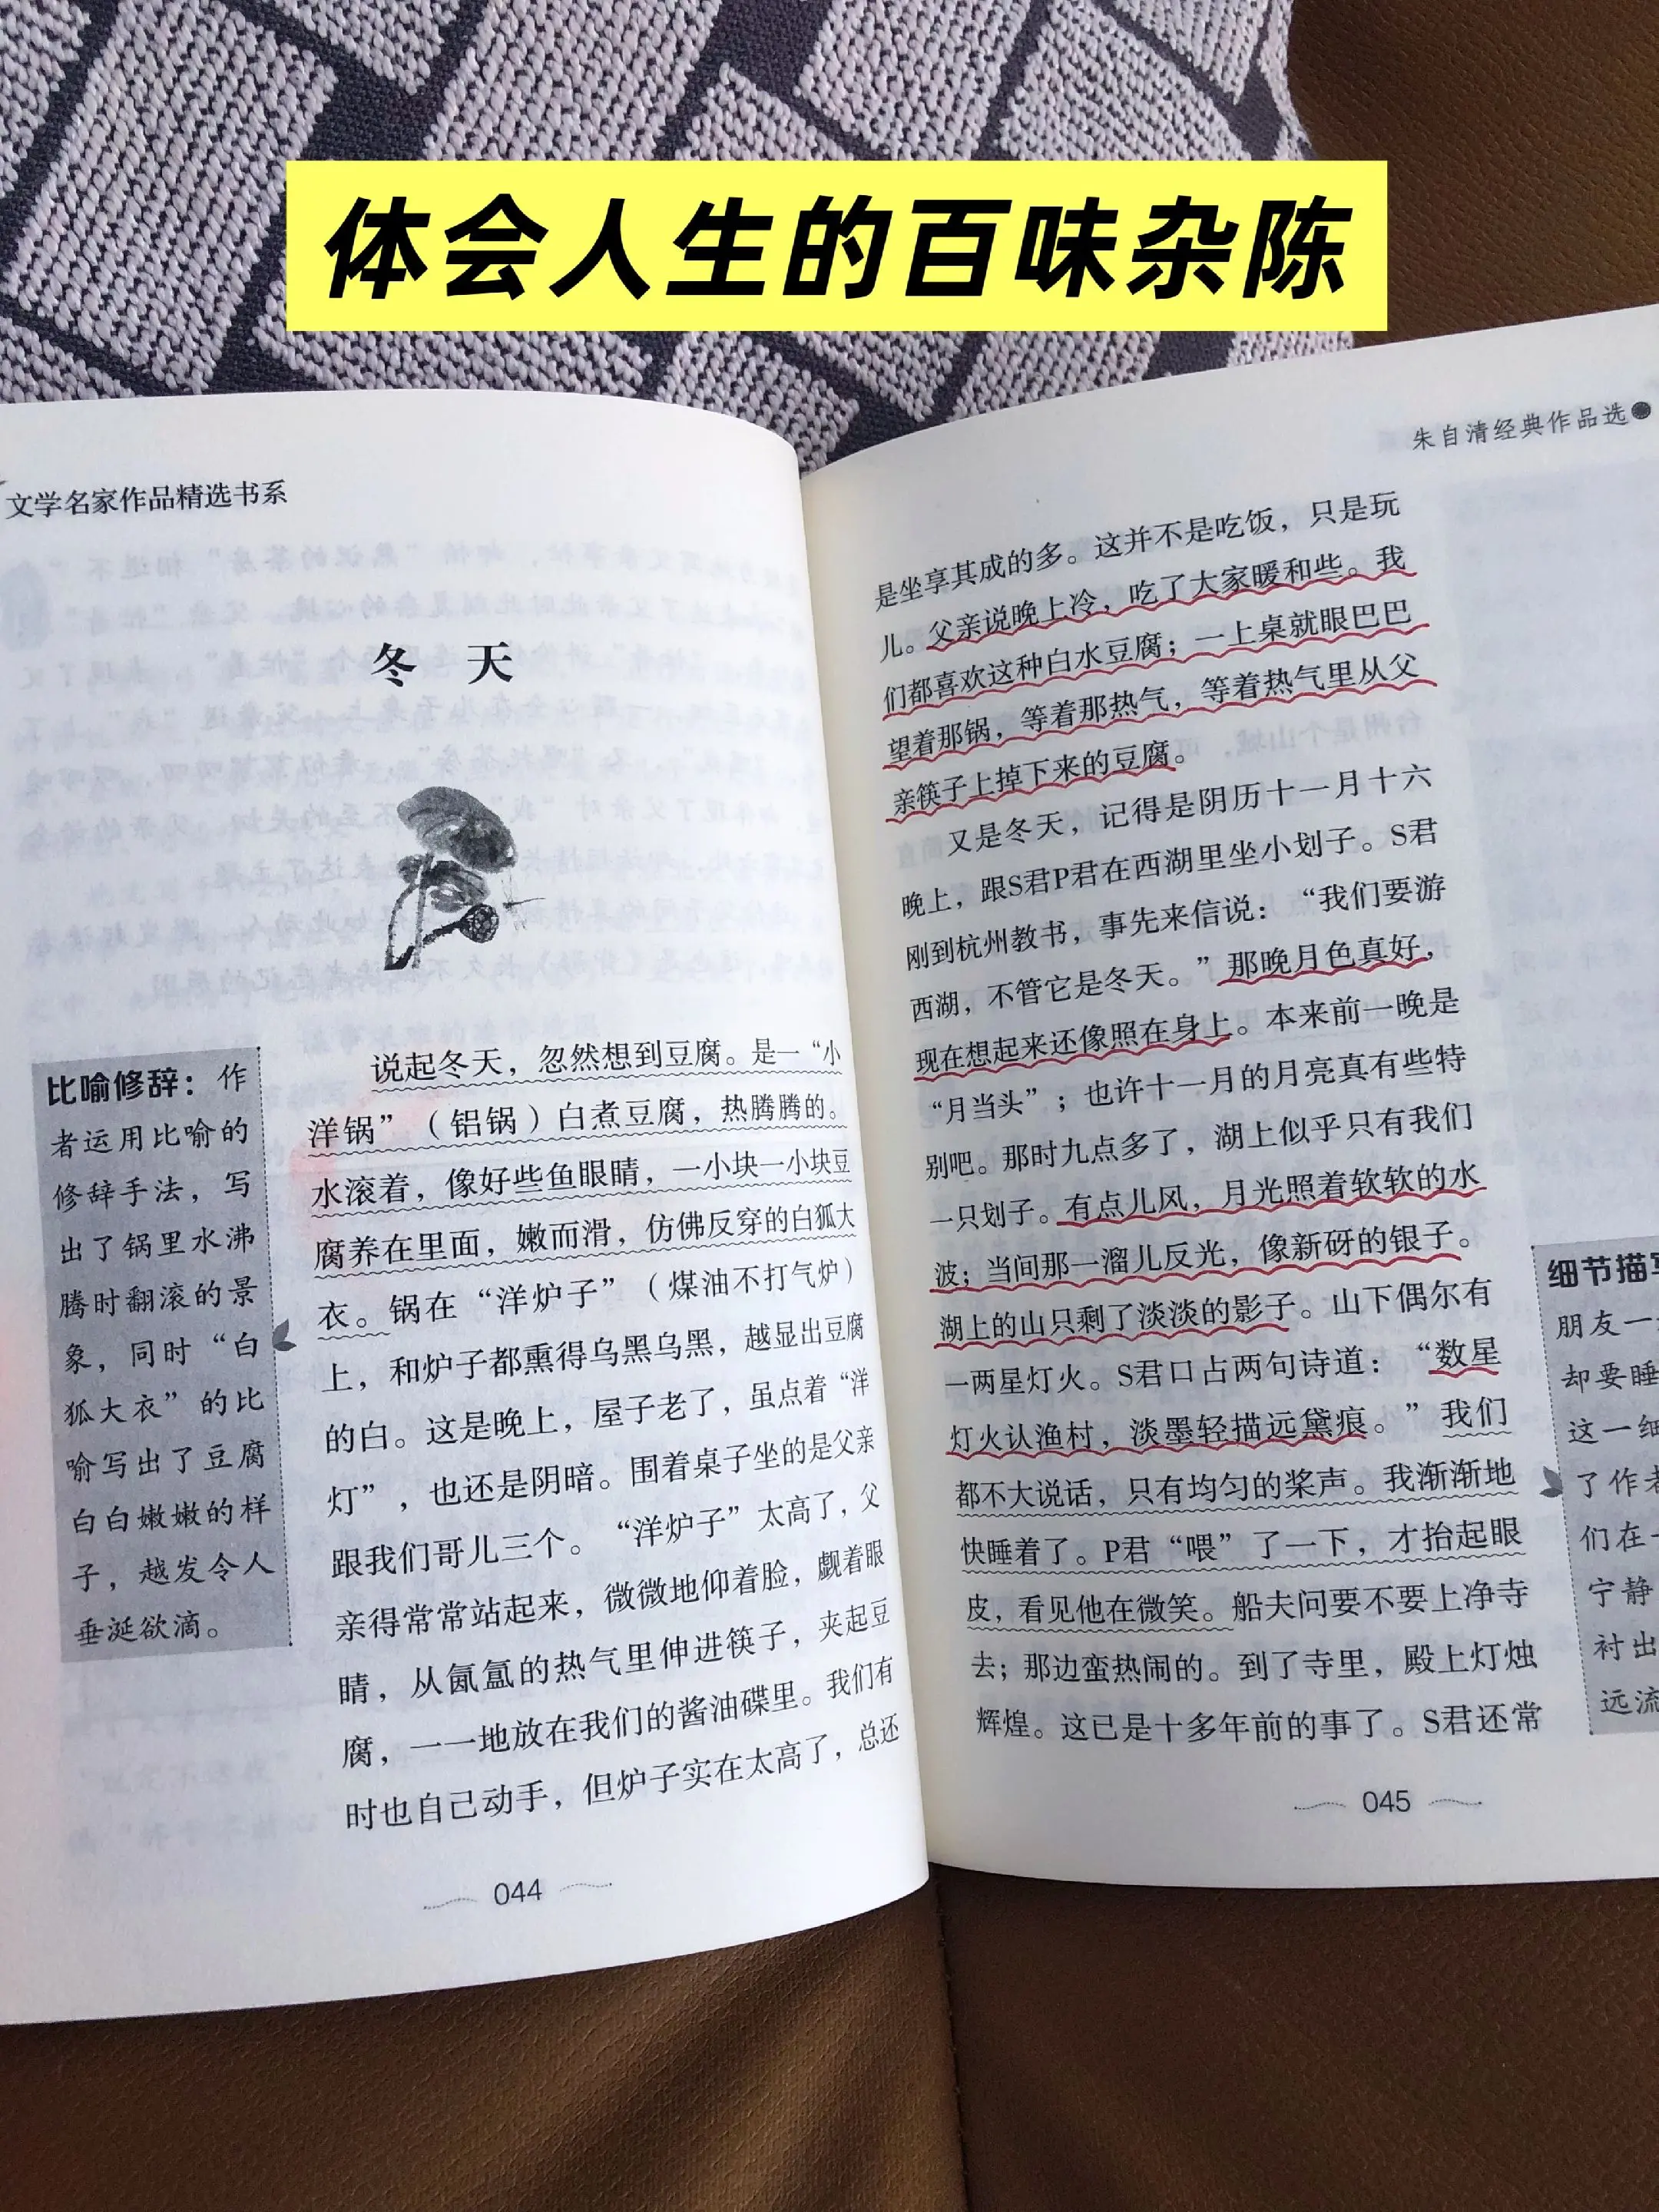 体会人生的百味杂陈
文学名家作品精选书系
冬 天
说起冬天，忽然想到豆腐。是一“小
洋锅”（铝锅）白煮豆腐，热腾腾的。
水滚着，像好些鱼眼睛，一小块一小块豆
腐养在里面，嫩而滑，仿佛反穿的白狐大
衣。锅在“洋炉子”（煤油不打气炉）
上，和炉子都熏得乌黑乌黑，越显出豆腐
的白。这是晚上，屋子老了，虽点着“洋
灯”，也还是阴暗。围着桌子坐的是父亲
跟我们哥儿三个。“洋炉子”太高了，父
亲得常常站起来，微微地仰着脸，觑着眼
睛，从氤氲的热气里伸进筷子，夹起豆
腐，一一地放在我们的酱油碟里。我们有
时也自己动手，但炉子实在太高了，总还
比喻修辞：作
者运用比喻的
修辞手法，写
出了锅里水沸
腾时翻滚的景
象，同时“白
狐大衣”的比
喻写出了豆腐
白白嫩嫩的样
子，越发令人
垂涎欲滴。
044
朱自清经典作品选
是坐享其成的多。这并不是吃饭，只是玩
儿。父亲说晚上冷，吃了大家暖和些。我
们都喜欢这种白水豆腐；一上桌就眼巴巴
望着那锅，等着那热气，等着热气里从父
亲筷子上掉下来的豆腐。
又是冬天，记得是阴历十一月十六
晚上，跟S君P君在西湖里坐小划子。S君
刚到杭州教书，事先来信说：“我们要游
西湖，不管它是冬天。”那晚月色真好，
现在想起来还像照在身上。本来前一晚是
“月当头”；也许十一月的月亮真有些特
别吧。那时九点多了，湖上似乎只有我们
一只划子。有点儿风，月光照着软软的水
波；当间那一溜儿反光，像新砑的银子。
湖上的山只剩了淡淡的影子。山下偶尔有
一两星灯火。S君口占两句诗道：“数星
灯火认渔村，淡墨轻描远黛痕。”我们
都不大说话，只有均匀的桨声。我渐渐地
快睡着了。P君“喂”了一下，才抬起眼
皮，看见他在微笑。船夫问要不要上净寺
去；那边蛮热闹的。到了寺里，殿上灯烛
辉煌。这已是十多年前的事了。S君还常
细节描写
朋友一
却要睡
这一细
了作者
们在一
宁静
衬出
远流
045